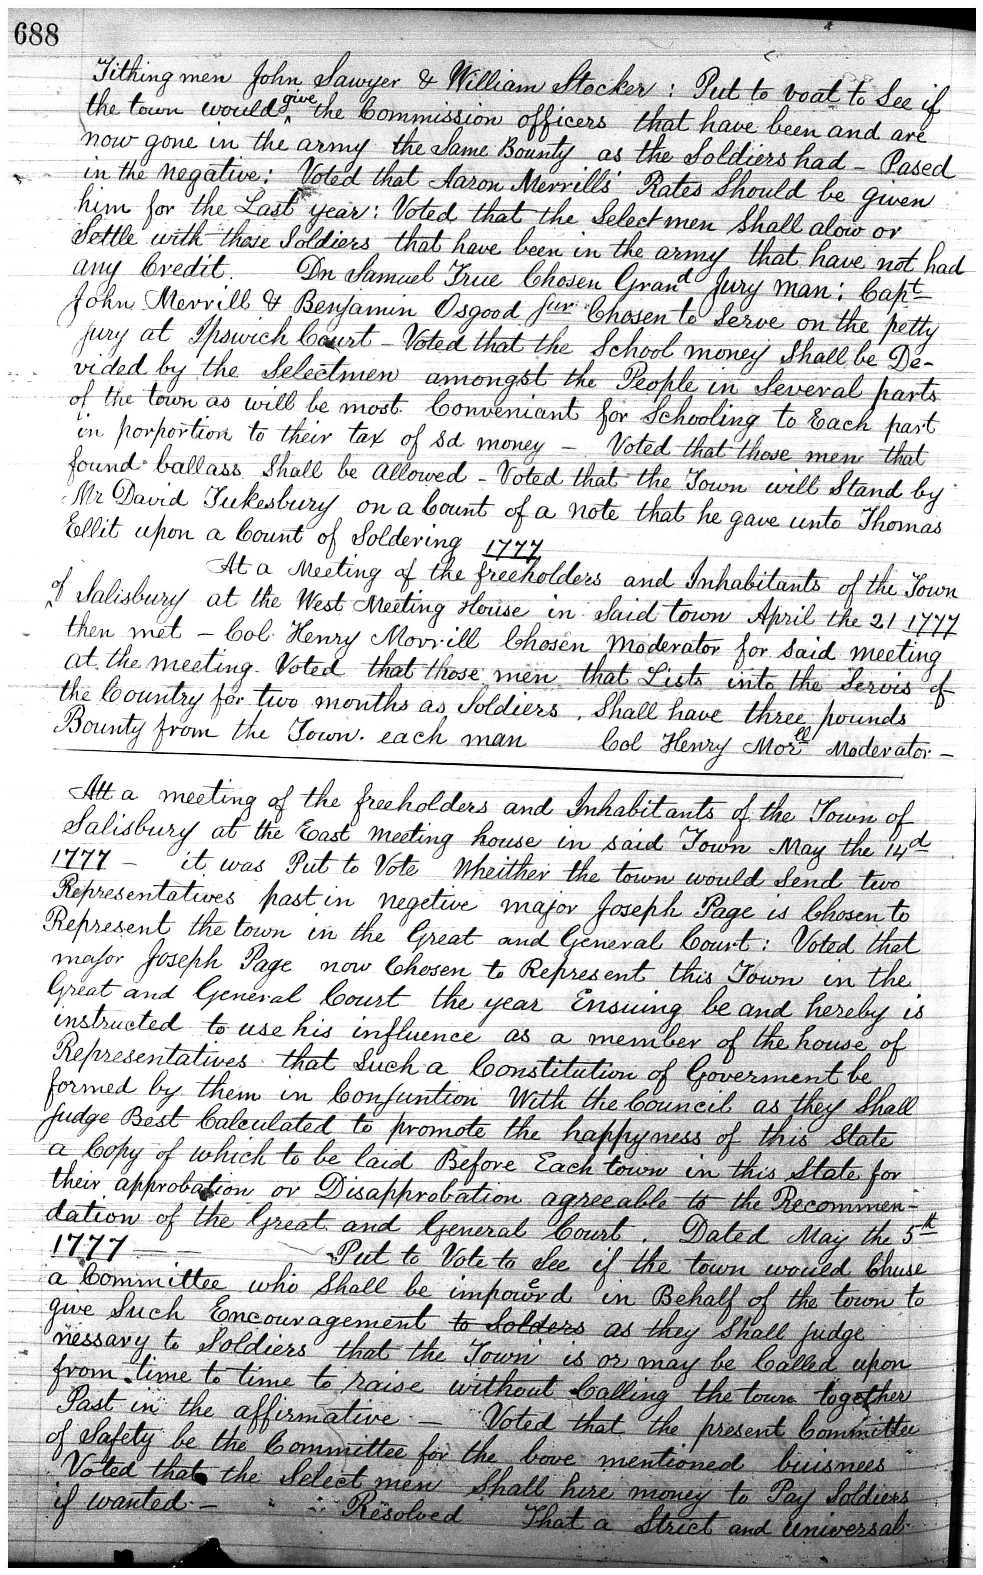 688
Tithing men John Sawyer & William Stocker : Put to voat to See if
the town would give the Commission officers that have been and are
now gone in the army the Same Bounty as the Soldiers had - Pased
in the negative : Voted that Aaron Merrills' Rates Should be given
him for the Last year : Voted that the Select men Shall alow or
Settle with those Soldiers that have been in the army that have not had
any Credit. Dn Samuel True Chosen Grand Jury man : Capt
John Merrill & Benjamin Osgood jur Chosen to Serve on the petty
jury at Ipswich Court - Voted that the School money Shall be De-
vided by the Selectmen amongst the People in Several parts
of the town as will be most Conveniant for Schooling to Each part
in porportion to their tax of sd money - Voted that those men that
found ballass Shall be Allowed - Voted that the Town will Stand by
Mr David Tukesbury on a Count of a note that he gave unto Thomas
Ellit upon a Count of Soldering 1777
At a Meeting of the freeholders and Inhabitants of the Town
of Salisbury at the West Meeting House in Said town April the 21 1777
then met - Col. Henry Morrill Chosen Moderator for said meeting
at the meeting. Voted that those men that Lists into the Servis of
the Country for two months as Soldiers, Shall have three pounds
Bounty from the Town. each man Col Henry Morll Moderator -
Att a meeting of the freeholders and Inhabitants of the Town of
Salisbury at the East Meeting house in said Town May the 14d
1777 - it was Put to Vote Wheither the town would Send two
Representatives past in negetive major Joseph Page is Chosen to
Represent the town in the Great and General Court : Voted that
major Joseph Page now Chosen to Represent this Town in the
Great and General Court the year Ensuing be and hereby is
instructed to use his influence as a member of the house of
Representatives that Such a Constitution of Goverment be
formed by them in Conjuntion With the Council as they Shall
judge Best Calculated to promote the happyness of this State
a Copy of which to be laid Before Each town in this State for
their approbation or Disapprobation agreeable to the Recommen-
dation of the Great and General Court. Dated May the 5th
1777 - Put to Vote to See if the town would Chuse
a Committee who Shall be impowerd in Behalf of the town to
give Such Encouragement to Solders as they Shall judge
nessary to Soldiers that the Town is or may be Called upon
from time to time to raise without Calling the town together
Past in the affirmative - Voted that the present Committee
of Safety be the Committee for the bove mentioned buisnees
Voted that the Select men Shall hire money to Pay Soldiers
if wanted - Resolved That a Strict and universal